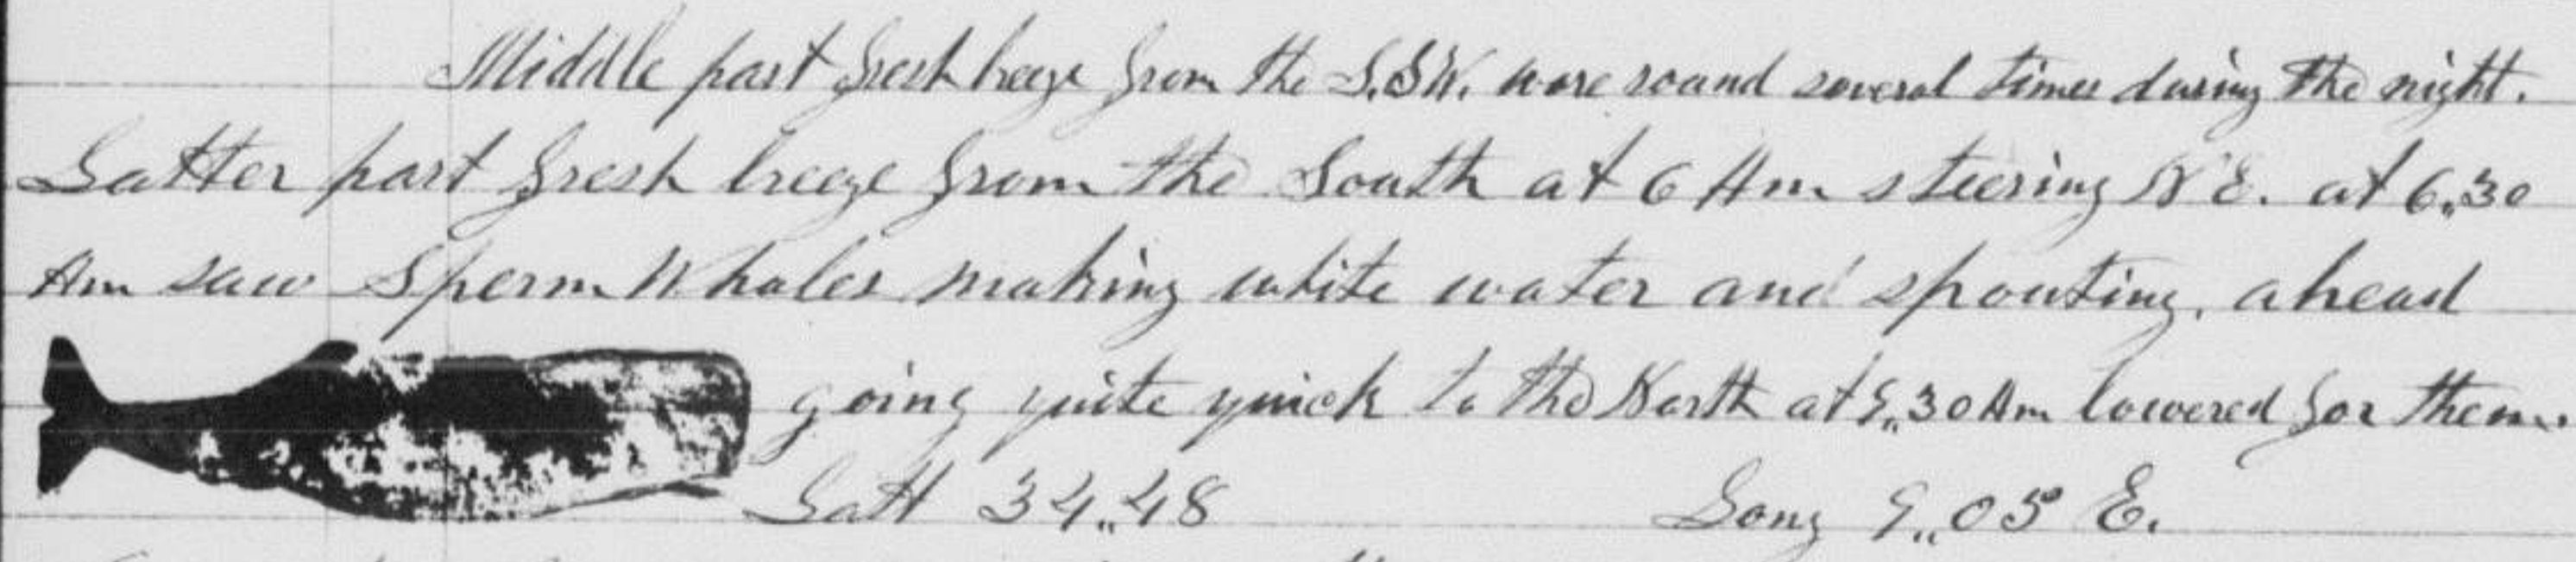 Middle part fresh breeze from the S.SW. wore round several times during the night.
Latter part fresh breeze from the South at 6 Am steering NE. at 6,,30
Am saw Sperm Whales making white water and spouting, ahead
going quite quick to the North at 9,,30 Am lowered for them.
Latt 34,,48 Long 9,,05 E.